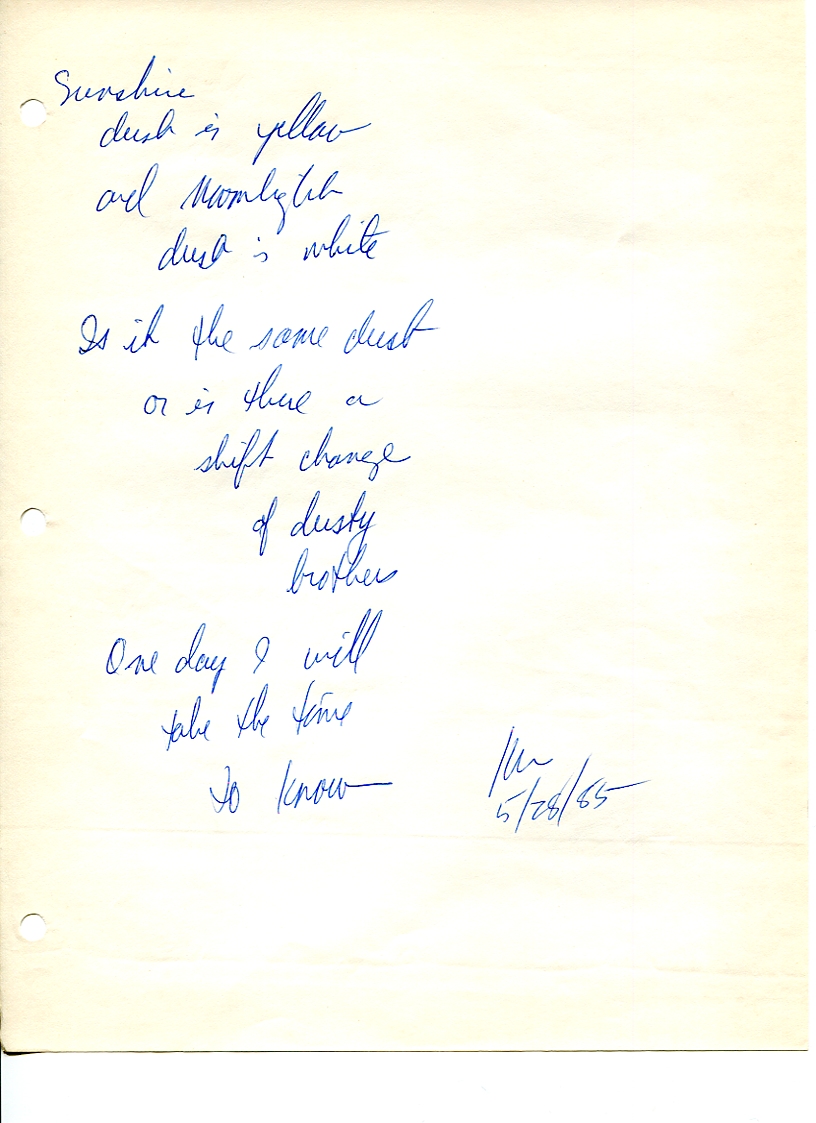 Sunshine
dust is yellow
and Moonlight
dust is white
Is it the same dust
or is there a
shift change
of dusty
brothers
One day I will
take the time
to know
5/28/85